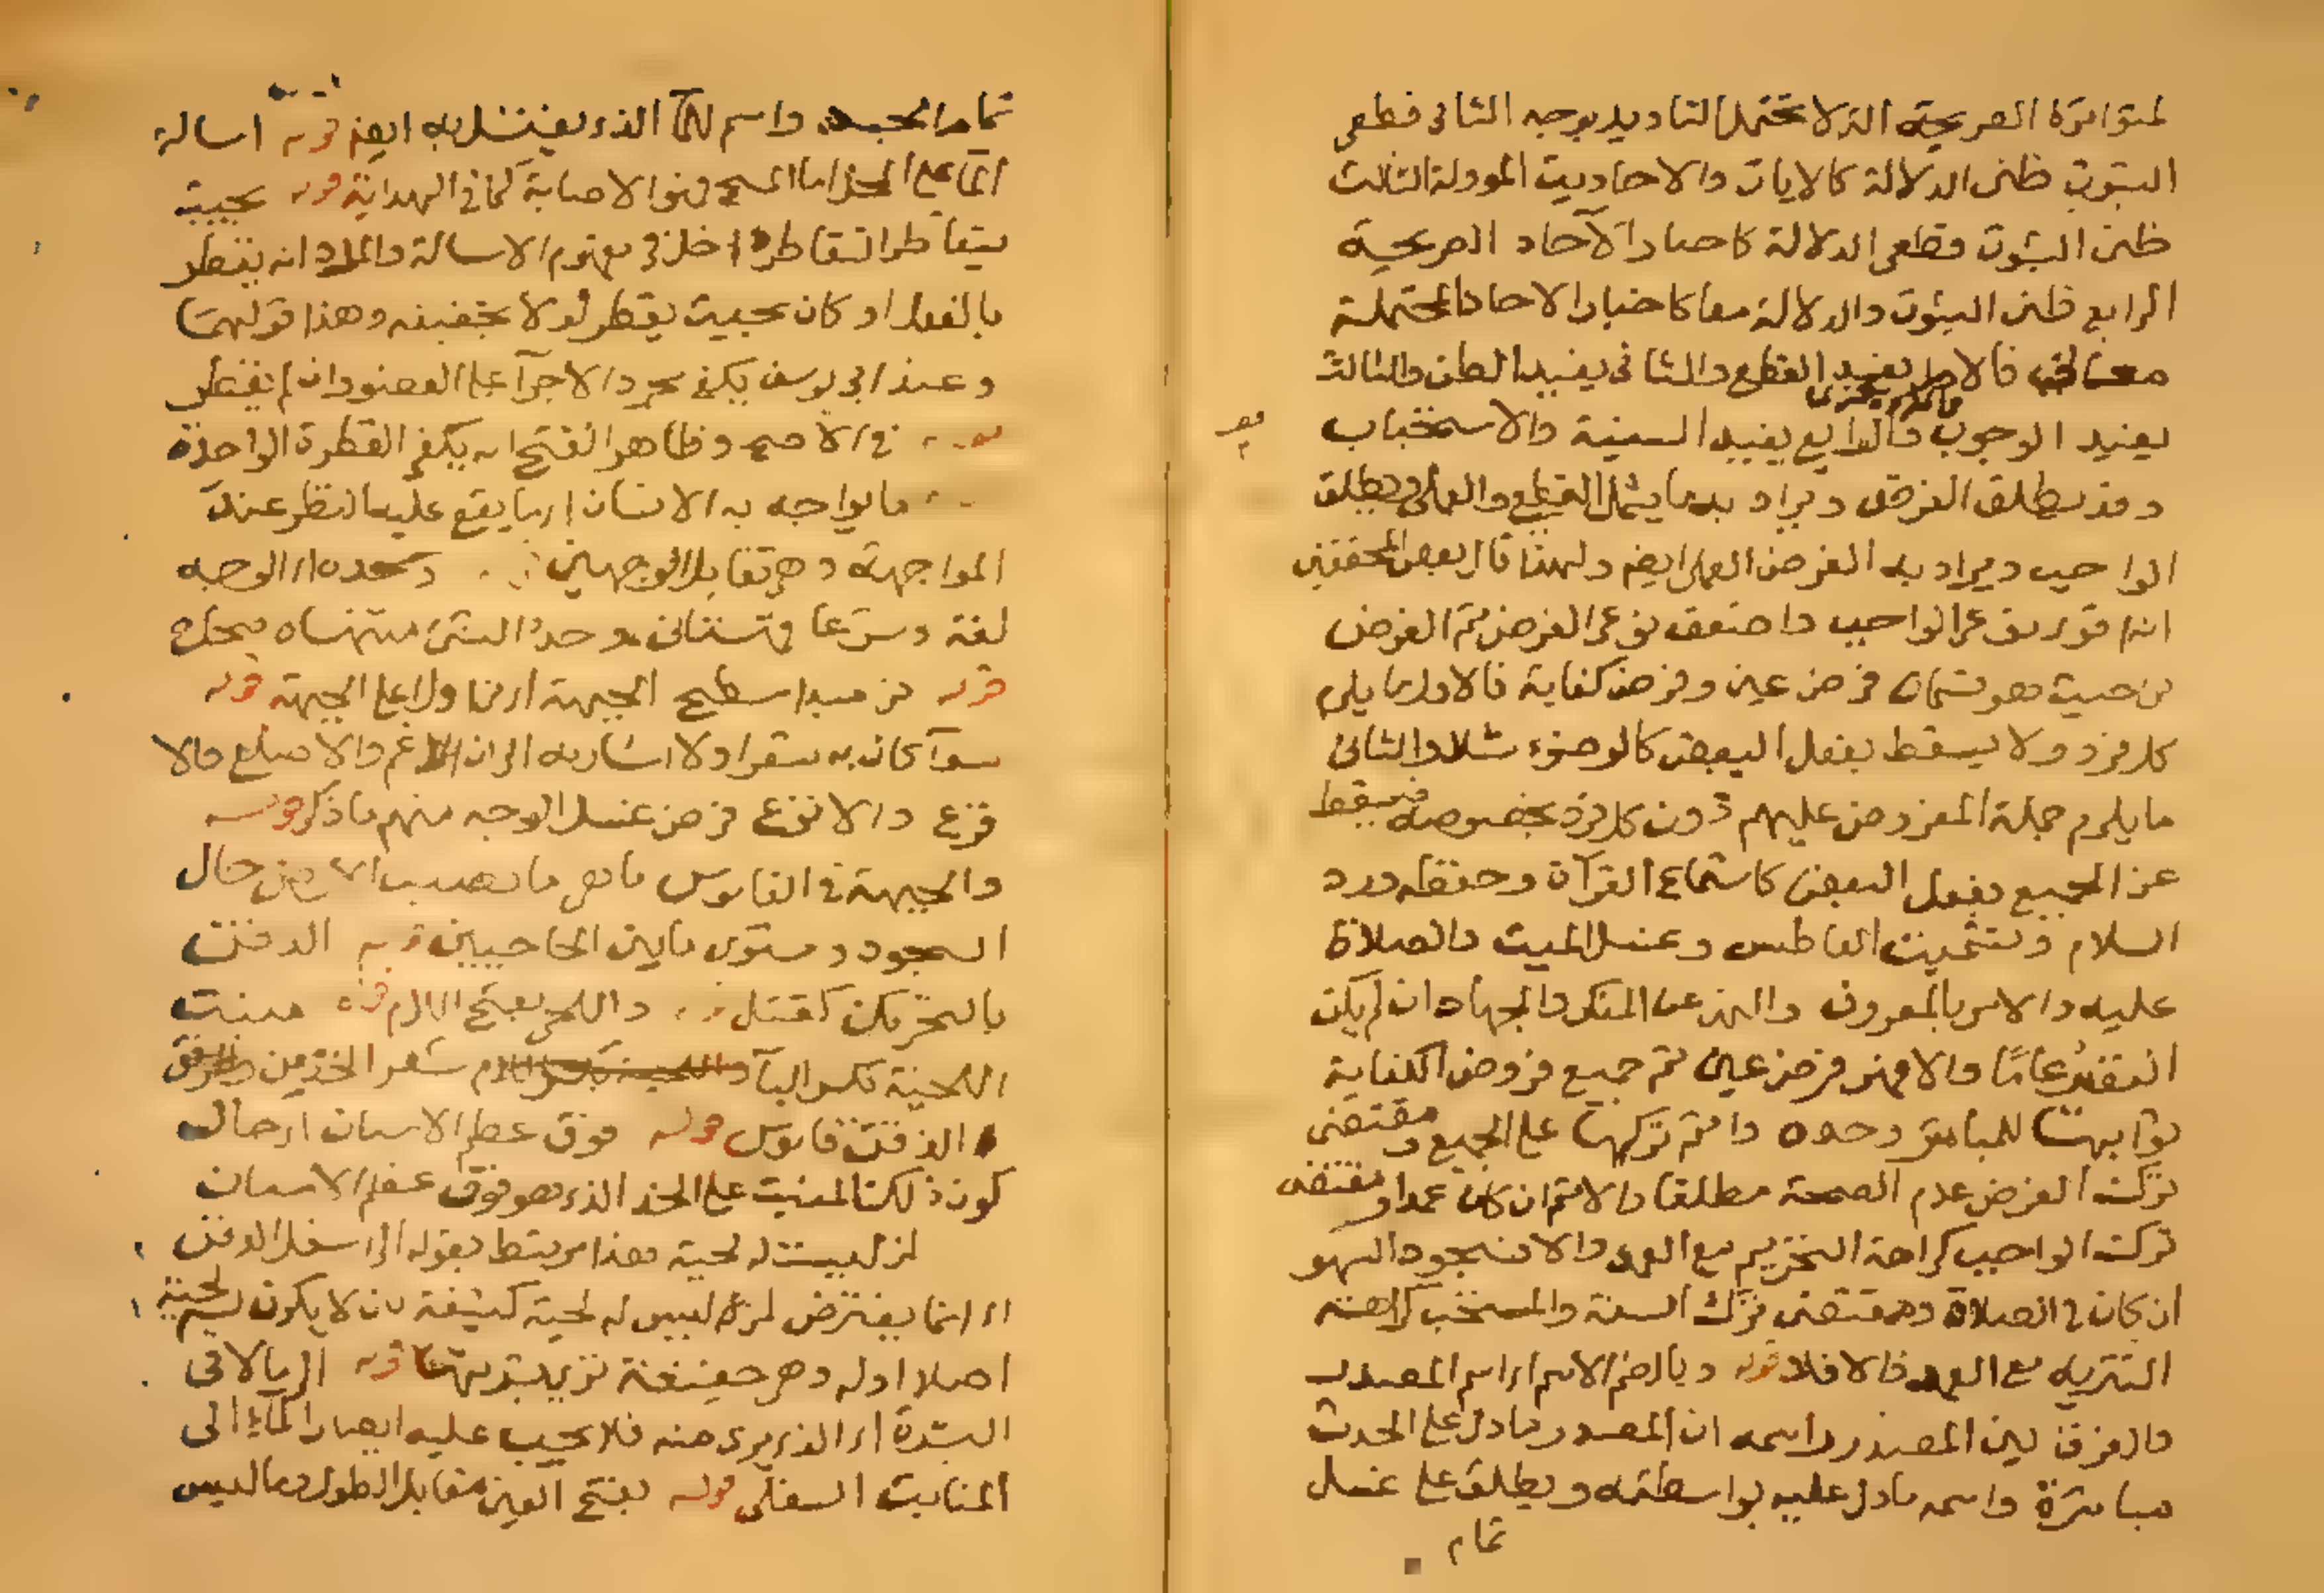 لمتواترة الصريحة التى لا تحتمل التاويل بوجه الثانى قطعى
الثبوت ظنى الدلالة كالايات والاحاديث المؤولة الثالث
ظنى الثبوت قطعى الدلالة كاخبار الآحاد الصريحة
الرابع ظنى الثبوت والدلالة معا كاخبار الاحاد المحتملة
معانى فالاول يفيد القطع والثانى يفيد الظن والثالث
يفيد الوجوب والرابع يفيد السنية والاستحباب
وقد يطلق الفرض ويراد به ما يشمل القطعى والعملى ويطلق
الواجب ويراد به الفرض العملى ايضا ولهذا قال بعض المحققين
انه اقوى نوعى الواجب واضعف نوعى الفرض ثم الفرض
من حيث هو قسمان فرض عين وفرض كفاية فالاول ما يلزم
كل فرد ولا يسقط بفعل البعض كالوضوء مثلا والثانى
ما يلزم جملة المفروض عليهم دون كل فرد بخصوصه فيسقط
عن الجميع بفعل البعض كاستماع القرآن وحفظه ورد
السلام وتشميت العاطس وغسل الميت والصلاة
عليه والامر بالمعروف والنهى عن المنكر والجهاد ان لم يكن
النفير عاما والا فهو فرض عين ثم جميع فروض الكفاية
ثوابها للمباشر وحده واثم تركها على الجميع ومقتضى
ترك الفرض عدم الصحة مطلقا والاثم ان كان عمدا ومقتضى
ترك الواجب كراهة التحريم مع العمد والا فسجود السهو
ان كان فى الصلاة ومقتضى ترك السنة والمستحب كراهة
التنزيه مع العمد والا فلا قوله وبالضم الاسم اى اسم المصدر
والفرق بين المصدر واسمه ان المصدر ما دل على الحدث
مباشرة واسمه ما دل عليه بواسطته ويطلق على غسل
تمام
تمام الجسد واسم للمآ الذى يغتسل به ايضا قوله اسالة
المآ على المحل اما المسح فهو الاصابة كما فى الهداية قوله بحيث
يتقاطر التقاطر داخل فى مفهوم الاسالة والمراد انه يتقطر
بالفعل او كان بحيث يقطر لولا تجفيفه وهذا قولهما
وعند ابى يوسف يكفى مجرد الاجرآ على العضو وان لم يتقطر
فى الاصح وظاهر الفتح انه يكفى القطرة الواحدة
ما يواجه به الانسان اى ما يقع عليه النظر عند
المواجهة وهى تقابل الوجهين وحده اى الوجه
لغة وشرعا وحد الشئ منتهاه
قوله من مبدا سطح الجبهة اى من اول اعلى الجبهة قوله
سوآ كان به شعر او لا اشار به الى ان الاغم والاصلع والا
قرع والانزع فرض غسل الوجه منهم ما ذكر قوله
والجبهة فى القاموس ما يصيب الارض حال
السجود ومستوى ما بين الحاجبين قوله الذقن
بالتحريك واللحى بفتح اللام قوله منبت
اللحية بكسر اللام شعر الخدين
والذقن قاموس قوله فوق عظم الاسنان اى حال
كون ذلك المنبت على الخد الذى هو فوق عظم الاسنان
لمن ليست له لحية هذا مرتبط بقوله الى اسفل الذقن
اى انما يفترض لمن ليس له لحية كثيفة بان لا يكون له لحية
اصلا او له وهى خفيفة ترى بشرتها قوله اى ما لاقى
البشرة اى الذى يرى منه فلا يجب عليه ايصال المآء الى
المنابت السفلى قوله بفتح العين مقابل الطول وما ليس